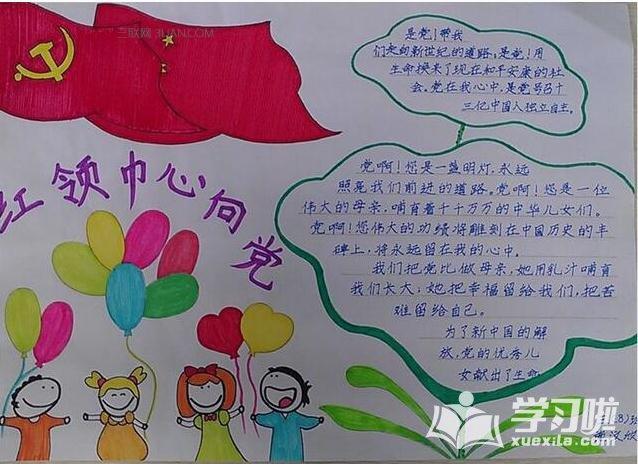 三联网 3LIAN.COM
红领巾心向党
是党！带我
们走向新世纪的道路，是党！用
生命换来了现在和平安康的社
会。党在我心中，是党号召十
三亿中国人独立自主。
党啊！您是一盏明灯，永远
照亮我们前进的道路，党啊！您是一位
伟大的母亲，哺育着千千万万的中华儿女们。
党啊！您伟大的功绩将雕刻在中国历史的丰
碑上，将永远留在我的心中。
我们把党比做母亲，她用乳汁哺育
我们长大；她把幸福留给我们，把苦
难留给自己。
为了新中国的解
放，党的优秀儿
女献出了生命
学习啦
xuexila.com